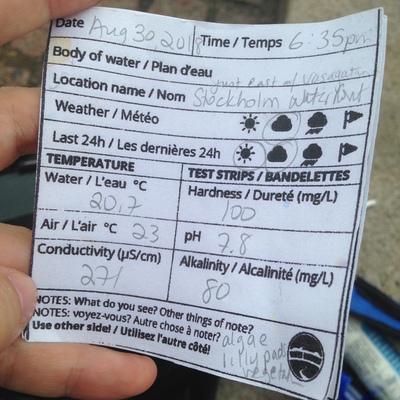 Date Aug 30, 2018 Time / Temps 6:35pm
Body of water / Plan d'eau
just East of
Location name / Nom Stockholm WaterFront
Weather / Météo
Last 24h / Les dernières 24h
TEMPERATURE TEST STRIPS / BANDELETTES
Water / L'eau °C Hardness / Dureté (mg/L)
20,7 100
Air / L'air °C 23 pH 7.8
Conductivity (µS/cm) Alkalinity / Alcalinité (mg/L)
271 80
NOTES: What do you see? Other things of note?
NOTES: voyez-vous? Autre chose à noter?
Use other side! / Utilisez l'autre côté! algae
lilly pads